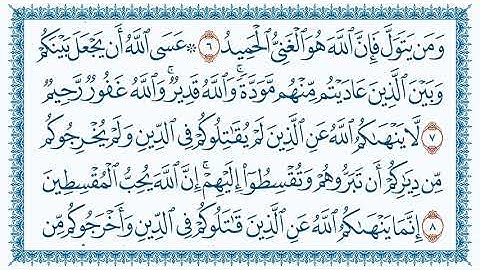 وَمَن يَتَوَلَّ فَإِنَّ ٱللَّهَ هُوَ ٱلْغَنِىُّ ٱلْحَمِيدُ ٦ ۞ عَسَى ٱللَّهُ أَن يَجْعَلَ بَيْنَكُمْ
وَبَيْنَ ٱلَّذِينَ عَادَيْتُم مِّنْهُم مَّوَدَّةً ۚ وَٱللَّهُ قَدِيرٌ ۚ وَٱللَّهُ غَفُورٌ رَّحِيمٌ
٧ لَّا يَنْهَىٰكُمُ ٱللَّهُ عَنِ ٱلَّذِينَ لَمْ يُقَٰتِلُوكُمْ فِى ٱلدِّينِ وَلَمْ يُخْرِجُوكُم
مِّن دِيَٰرِكُمْ أَن تَبَرُّوهُمْ وَتُقْسِطُوٓا۟ إِلَيْهِمْ ۚ إِنَّ ٱللَّهَ يُحِبُّ ٱلْمُقْسِطِينَ
٨ إِنَّمَا يَنْهَىٰكُمُ ٱللَّهُ عَنِ ٱلَّذِينَ قَٰتَلُوكُمْ فِى ٱلدِّينِ وَأَخْرَجُوكُم مِّن